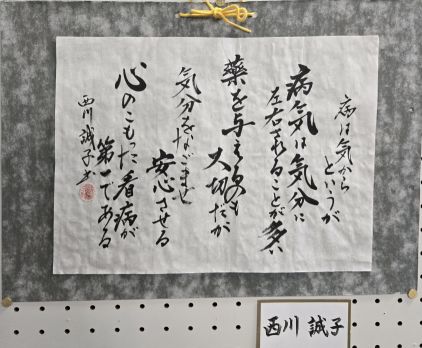 病は気から
というが
病気は気分に
左右されることが多い
薬を与えるのも
大切だが
気分をなごませ
安心させる
心のこもった看病が
第一である
西川誠子書
西川 誠子